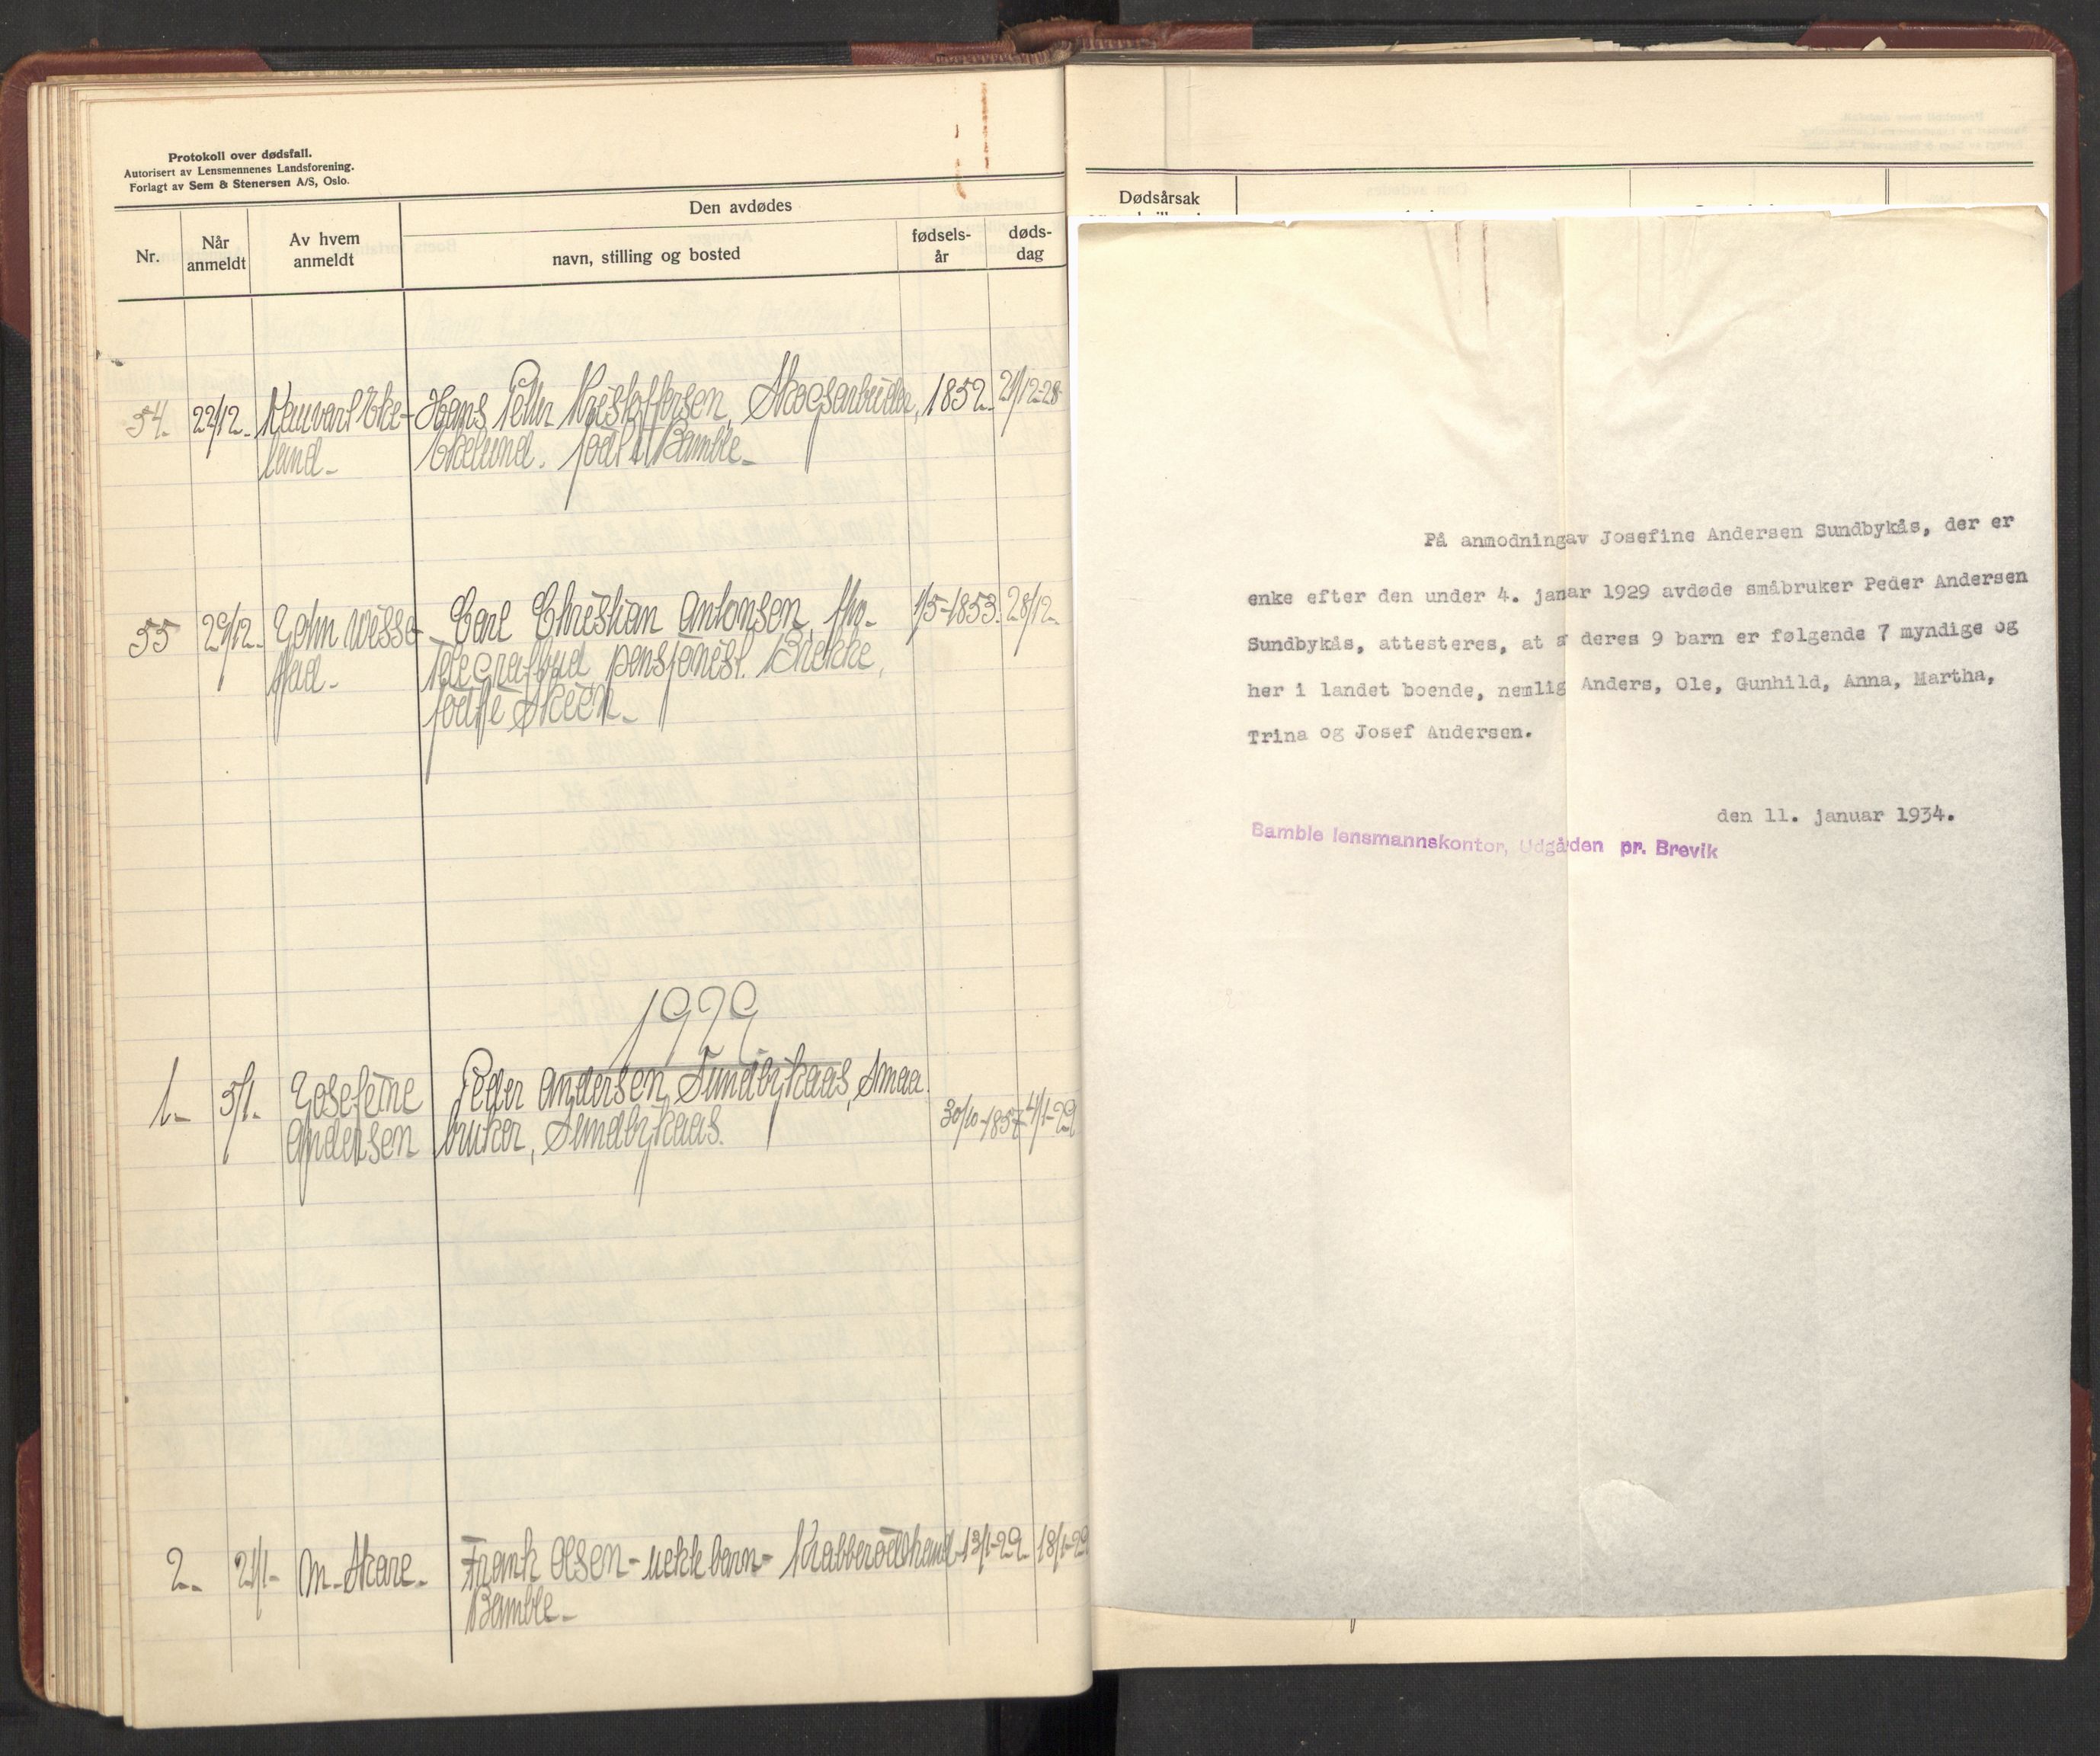 Protokoll over dødsfall.
Autorisert av Lensmennenes Landsforening.
Forlagt av Sem & Stenersen A/S, Oslo.
Nr.
Når
anmeldt
Av hvem
anmeldt
Den avdødes
navn, stilling og bosted
fødsels-
år
døds-
dag
54. 22/12. Eke- Hans Peter Kristoffersen, Skogsarbeider, 1852. 21/12-28
lund- Ekelund. født i Bamble-
55 29/12. John Wisse- Carl Christian Antonsen, 1/5-1853. 28/12-
stad- telegrafbud, pensjonist. Brekke,
født i Skien-
1929
1- 5/1. Josefine Peder Andersen Sundbykaas, Smaa-
Andersen bruker, Sundbykaas. 30/10-1857 4/1-29
2- 21/1- M. Skare- Frank Olsen- Krabberødstrand 13/1-29 18/1-29
Bamble-
Dødsårsak
På anmodningav Josefine Andersen Sundbykås, der er
enke efter den under 4. janar 1929 avdøde småbruker Peder Andersen
Sundbykås, attesteres, at deres 9 barn er følgende 7 myndige og
her i landet boende, nemlig Anders, Ole, Gunhild, Anna, Martha,
Trina og Josef Andersen.
den 11. januar 1934.
Bamble lensmannskontor, Udgården pr. Brevik